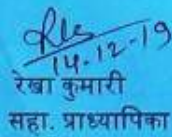 14.12.19
रेखा कुमारी
सहा. प्राध्यापिका